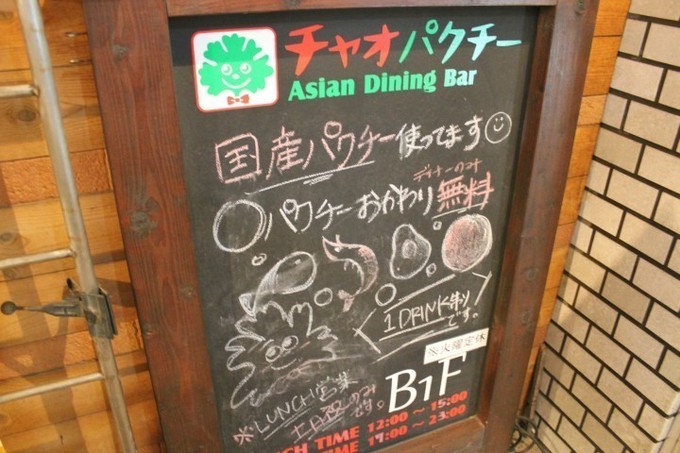 チャオパクチー
Asian Dining Bar
国産パクチー使ってます
ディナーのみ
パクチーおかわり無料
1DRINK制
です。
※火曜定休
B1F
※LUNCH営業
土日祝のみ
です。
CH TIME 12:00〜15:00
TIME 17:00〜23:00